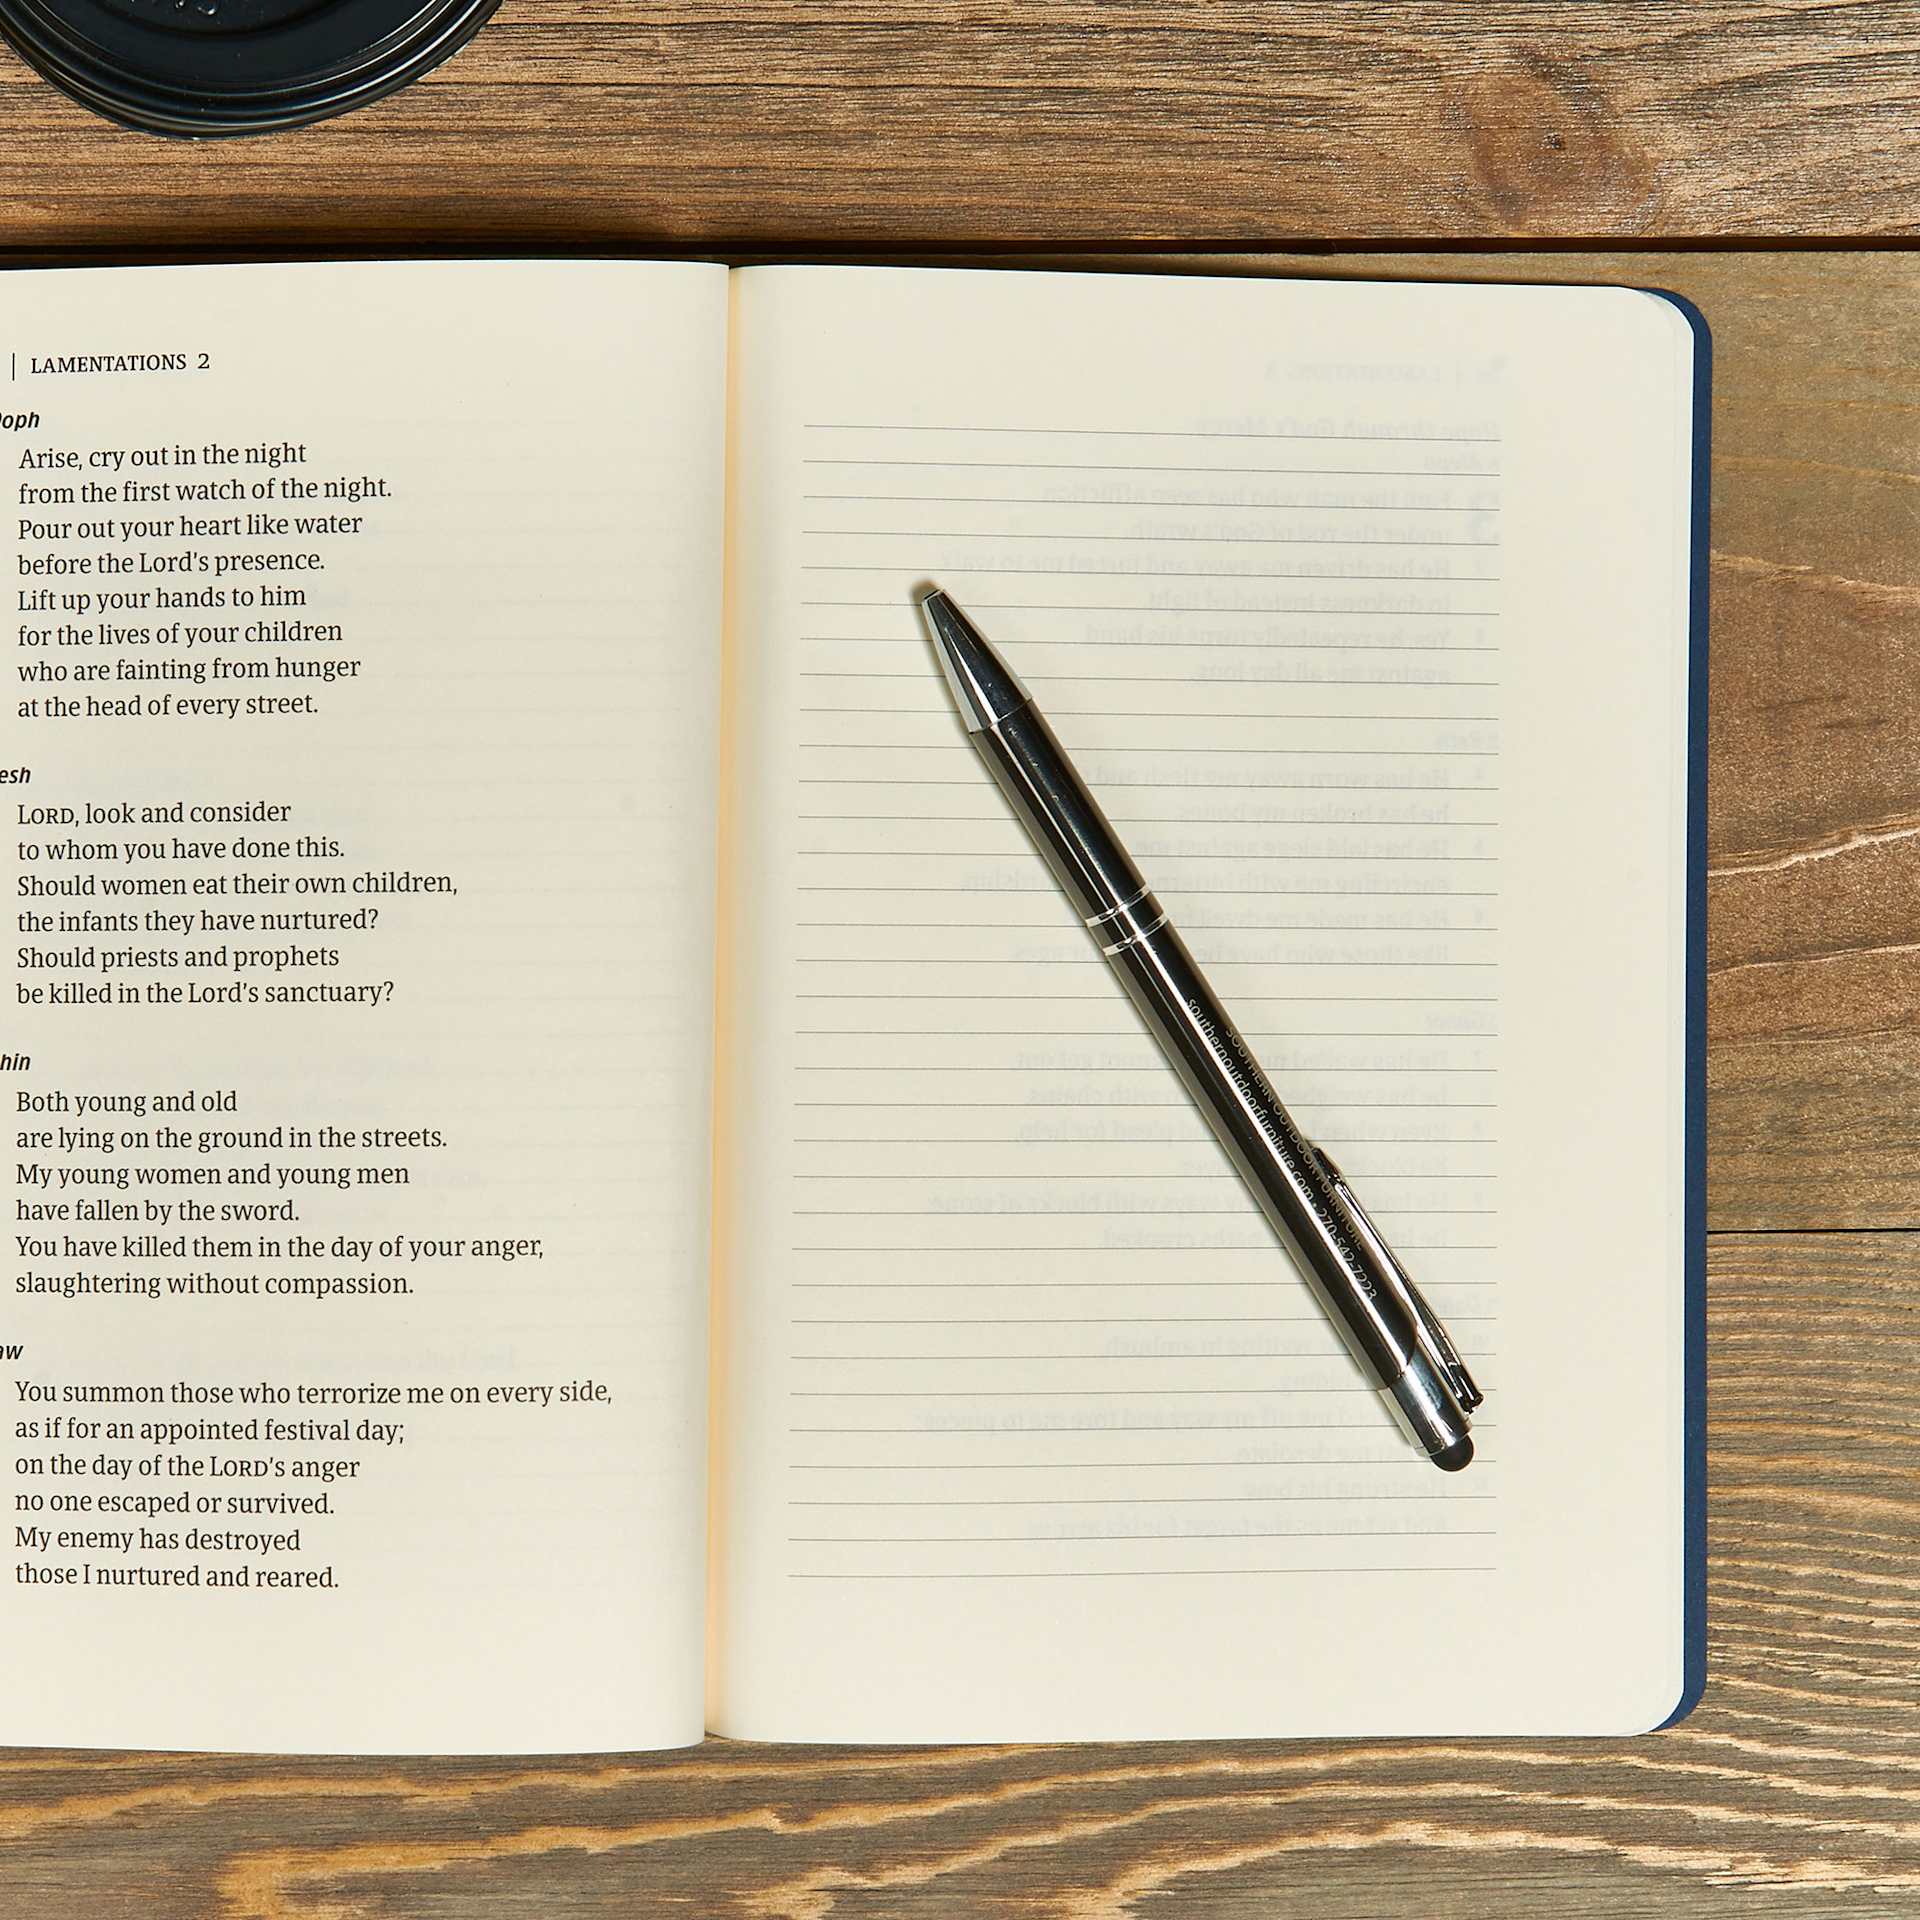 | LAMENTATIONS 2
oph
Arise, cry out in the night
from the first watch of the night.
Pour out your heart like water
before the Lord's presence.
Lift up your hands to him
for the lives of your children
who are fainting from hunger
at the head of every street.
esh
LORD, look and consider
to whom you have done this.
Should women eat their own children,
the infants they have nurtured?
Should priests and prophets
be killed in the Lord's sanctuary?
hin
Both young and old
are lying on the ground in the streets.
My young women and young men
have fallen by the sword.
You have killed them in the day of your anger,
slaughtering without compassion.
aw
You summon those who terrorize me on every side,
as if for an appointed festival day;
on the day of the LORD'S anger
no one escaped or survived.
My enemy has destroyed
those I nurtured and reared.
SOUTHERN OUTDOOR FURNITURE
southernoutdoorfurniture.com • 270-542-7223